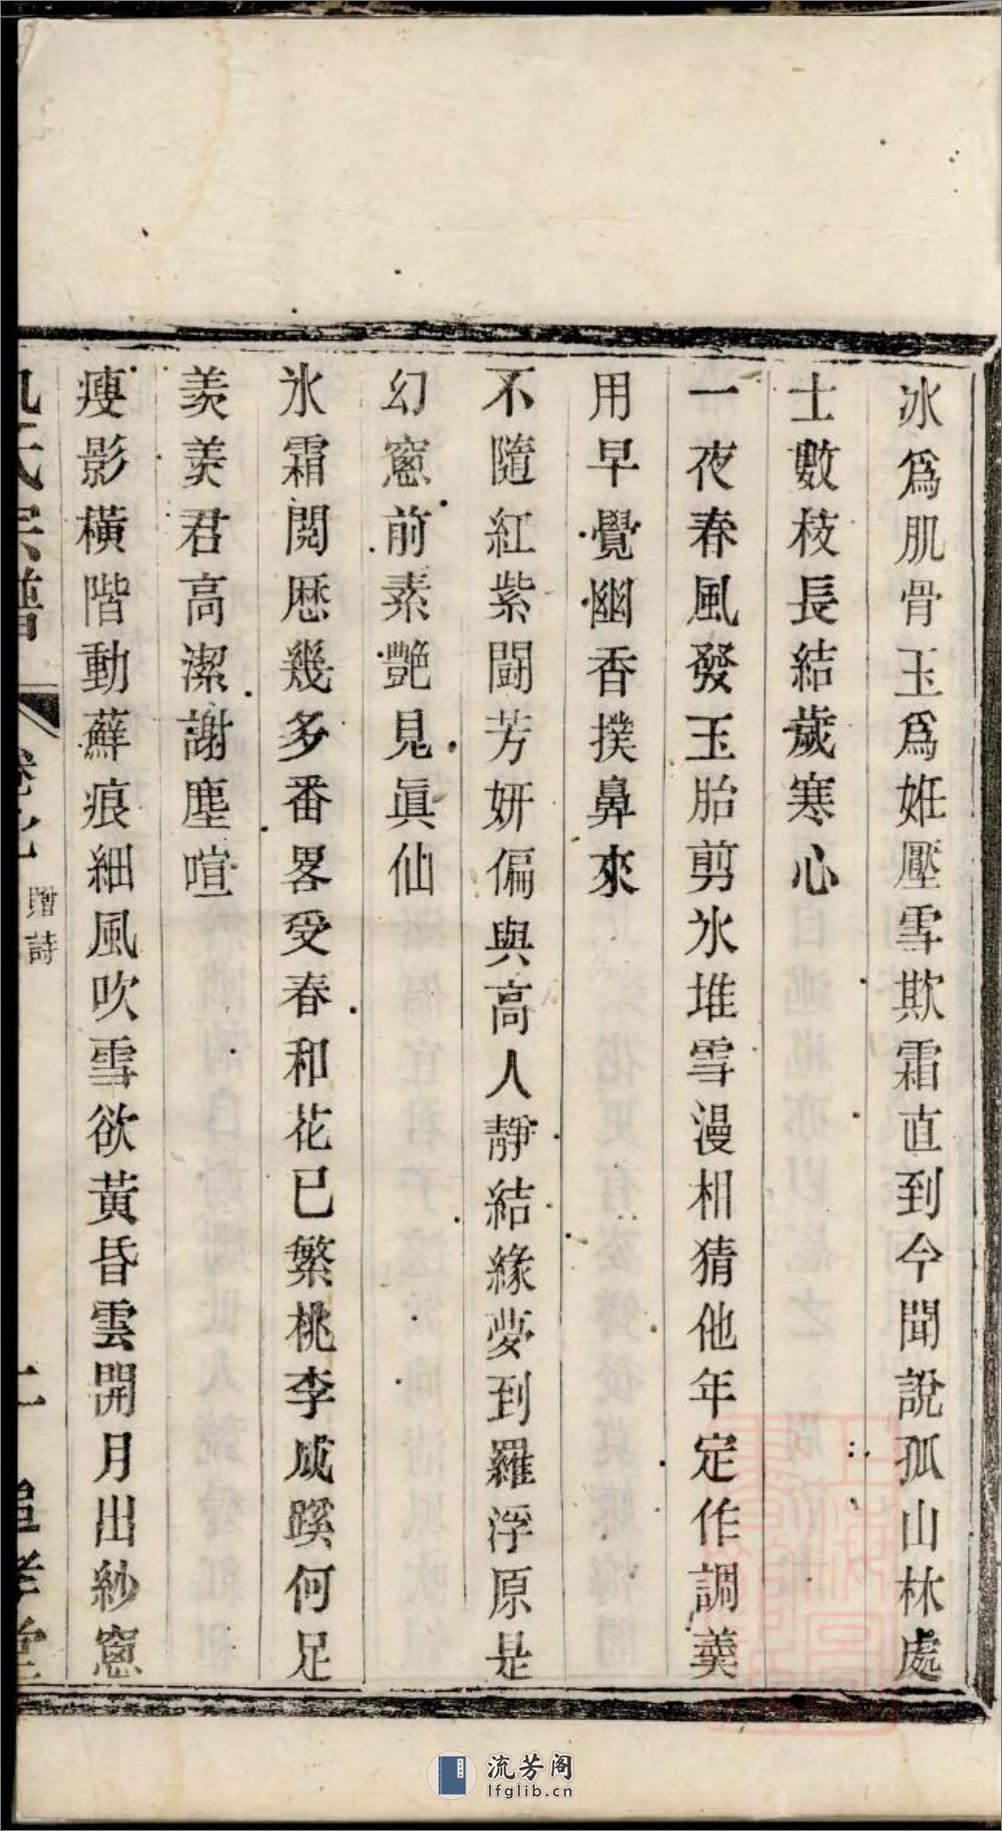 冰爲肌骨玉爲姙壓雪欺霜直到今聞說孤山林處
士數枝長結歲寒心
一夜春風發玉胎剪氷堆雪漫相猜他年定作調羹
用早覺幽香撲鼻來
不隨紅紫鬪芳妍偏與高人靜結緣夢到羅浮原是
幻窻前素艷見眞仙
氷霜閱歷幾多番畧受春和花已繁桃李成蹊何足
羨羨君高潔謝塵喧
瘦影橫階動蘚痕細風吹雪欲黃昏雲開月出紗窻
氏宗譜
卷七
贈詩
追孝堂
流芳阁
lfglib.cn